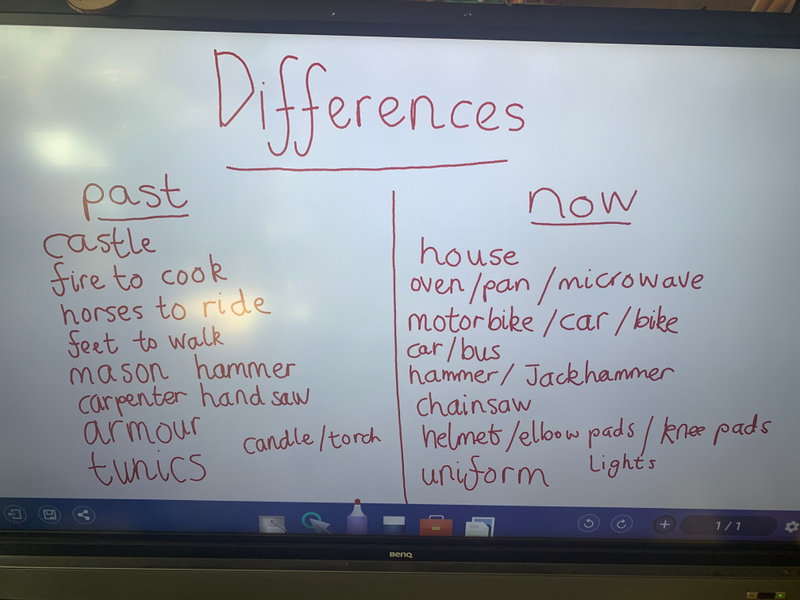 Differences
past
castle
fire to cook
horses to ride
feet to walk
mason hammer
carpenter hand saw
armour
candle/torch
tunics
now
house
oven/pan/microwave
motorbike/car/bike
car/bus
hammer/Jackhammer
chainsaw
helmet/elbow pads/knee pads
Lights
uniform
1/1
BenQ